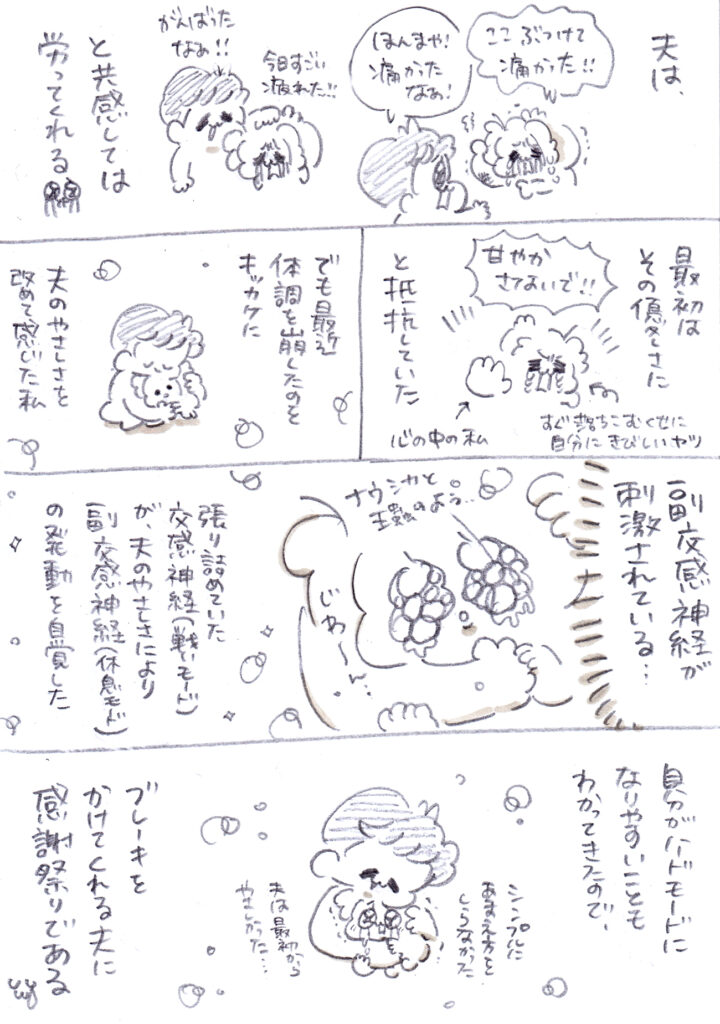 夫は、
ここ ぶつけて
痛かった!!
ほんまや!
痛かった
なぁ!
今日すごい
疲れた!!
がんばった
なぁ!!
と共感しては
労ってくれる
最初は
その優しさに
甘やか
さないで!!
と抵抗していた
すぐ落ちこむくせに
自分にきびしいヤツ
心の中の私
でも最近
体調を崩したのを
キッカケに
夫のやさしさを
改めて感じた私
副交感神経が
刺激されている…
ナウシカと
王蟲のよう…
じわ〜ん…
張り詰めていた
交感神経(戦いモード)
が、夫のやさしさにより
副交感神経(休息モード)
の発動を自覚した
自分がハードモードに
なりやすいことも
わかってきたので、
シンプルに
あまえ方を
しらなかった
夫は最初から
やさしかった…
ブレーキを
かけてくれる夫に
感謝祭りである